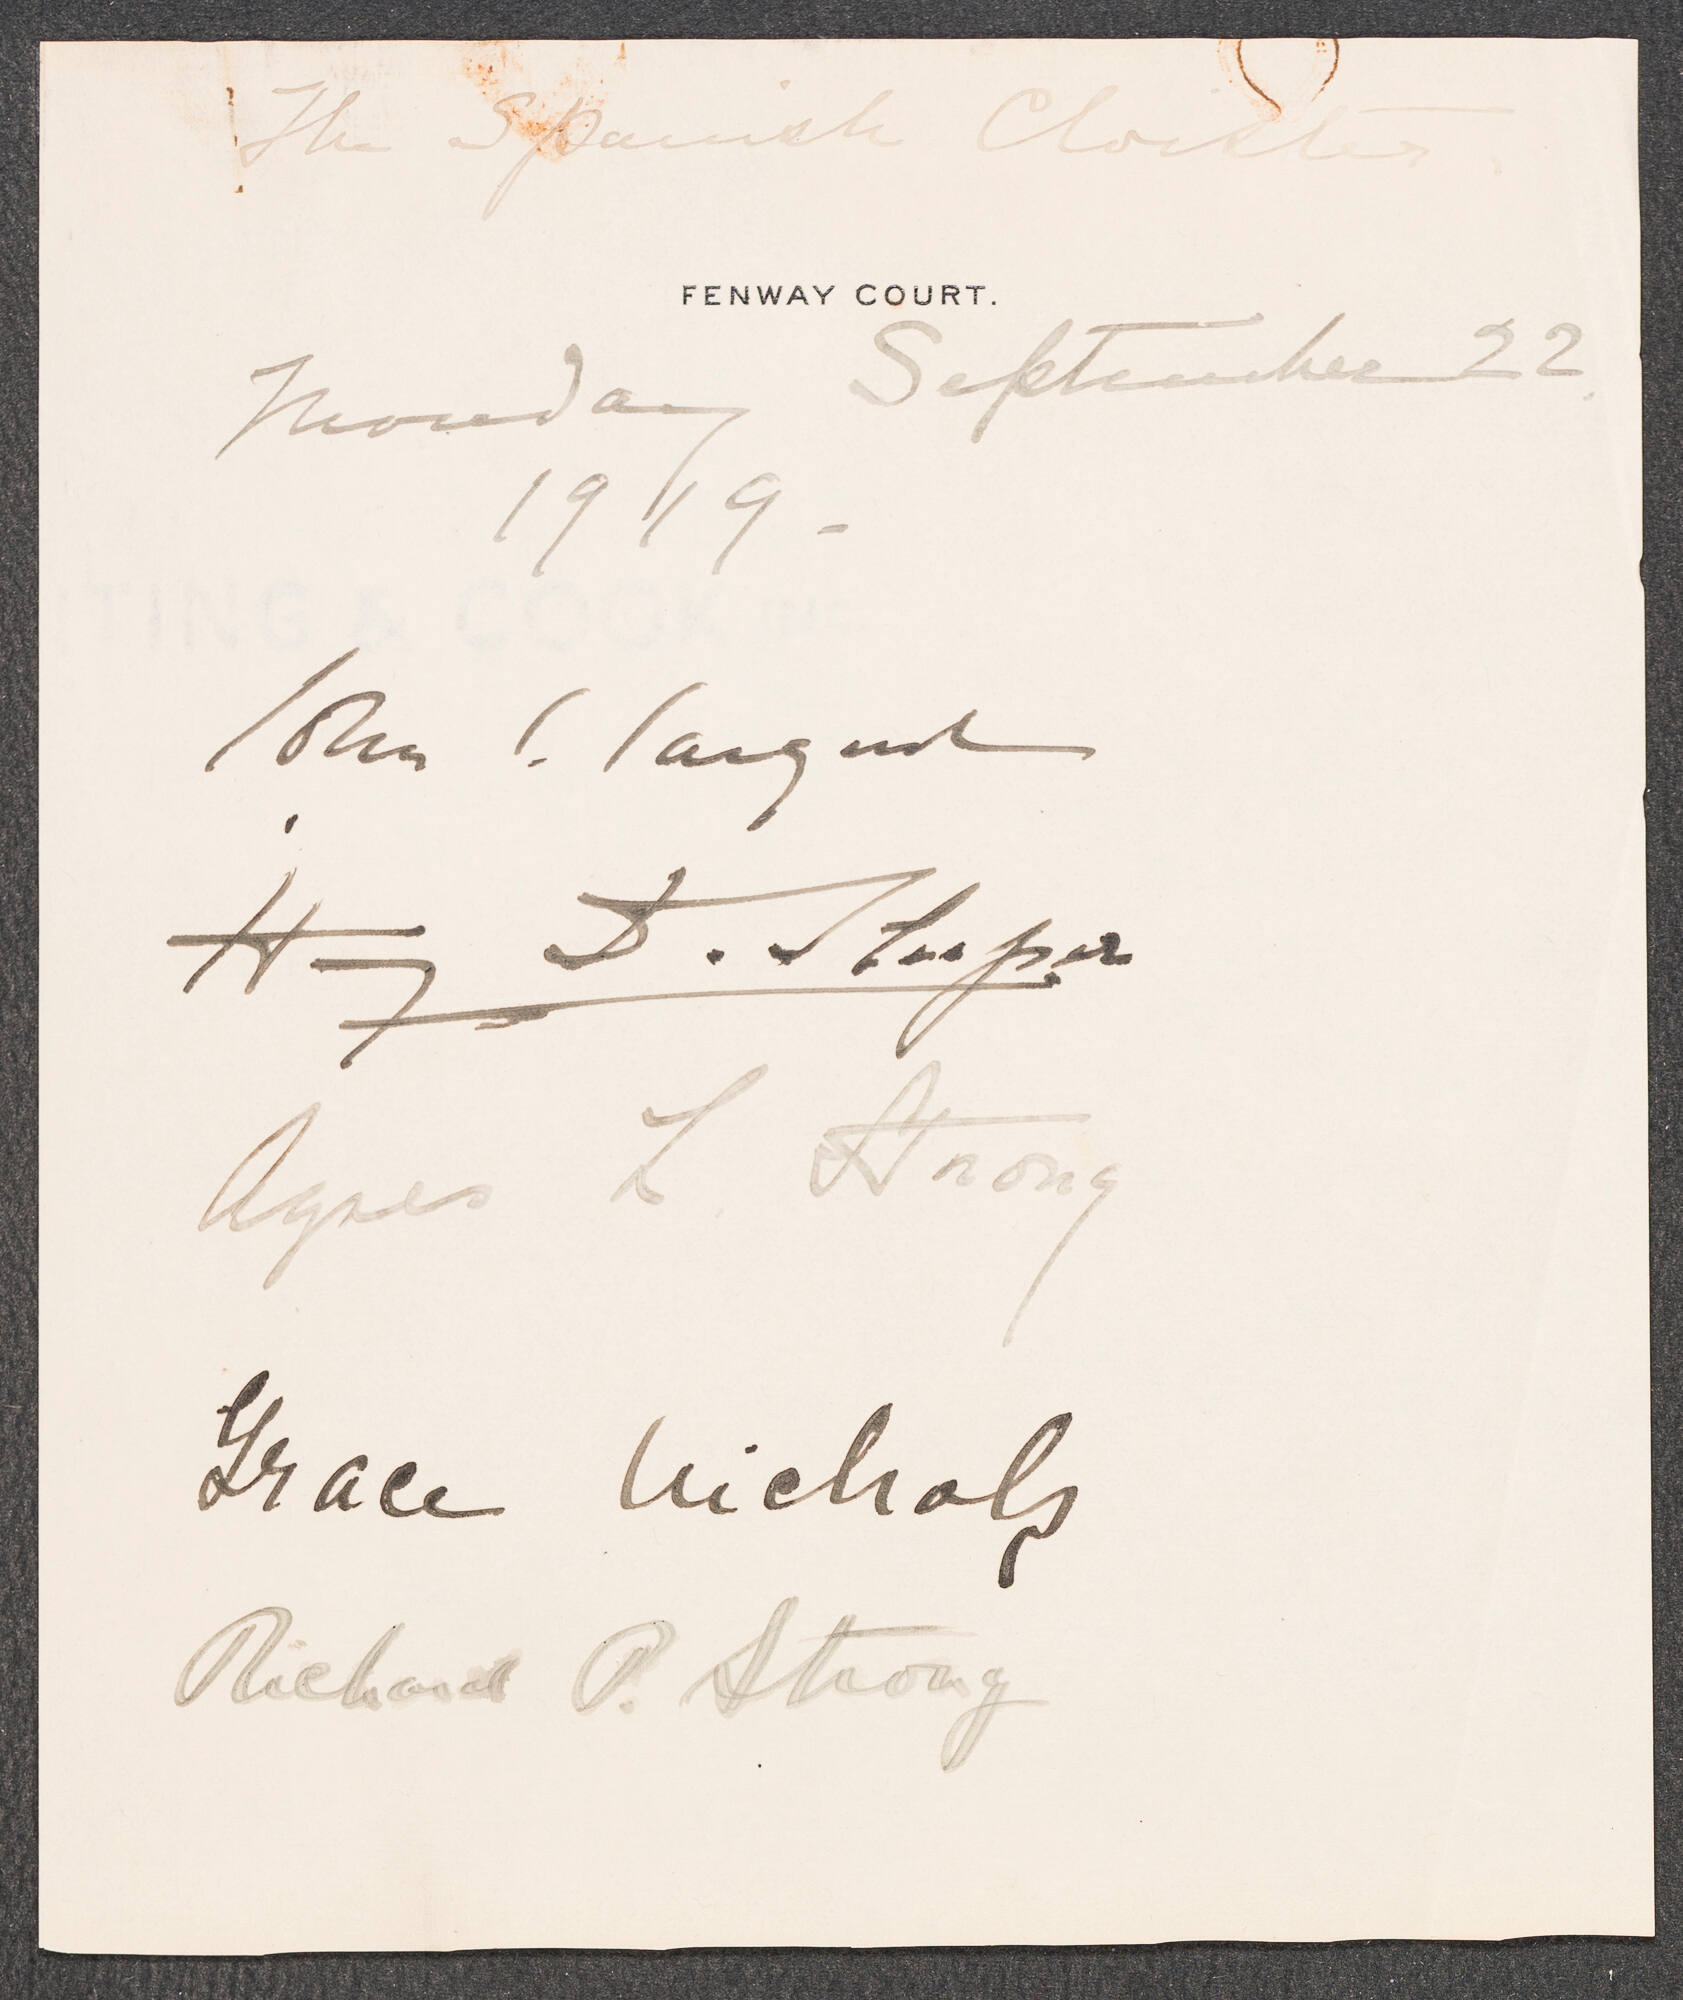 The Spanish Cloister.
FENWAY COURT.
Monday September 22.
1919 -
TING & COOK
John S. Sargent
Henry D. Sleeper
Agnes L Strong
Grace Nichols
Richard P. Strong